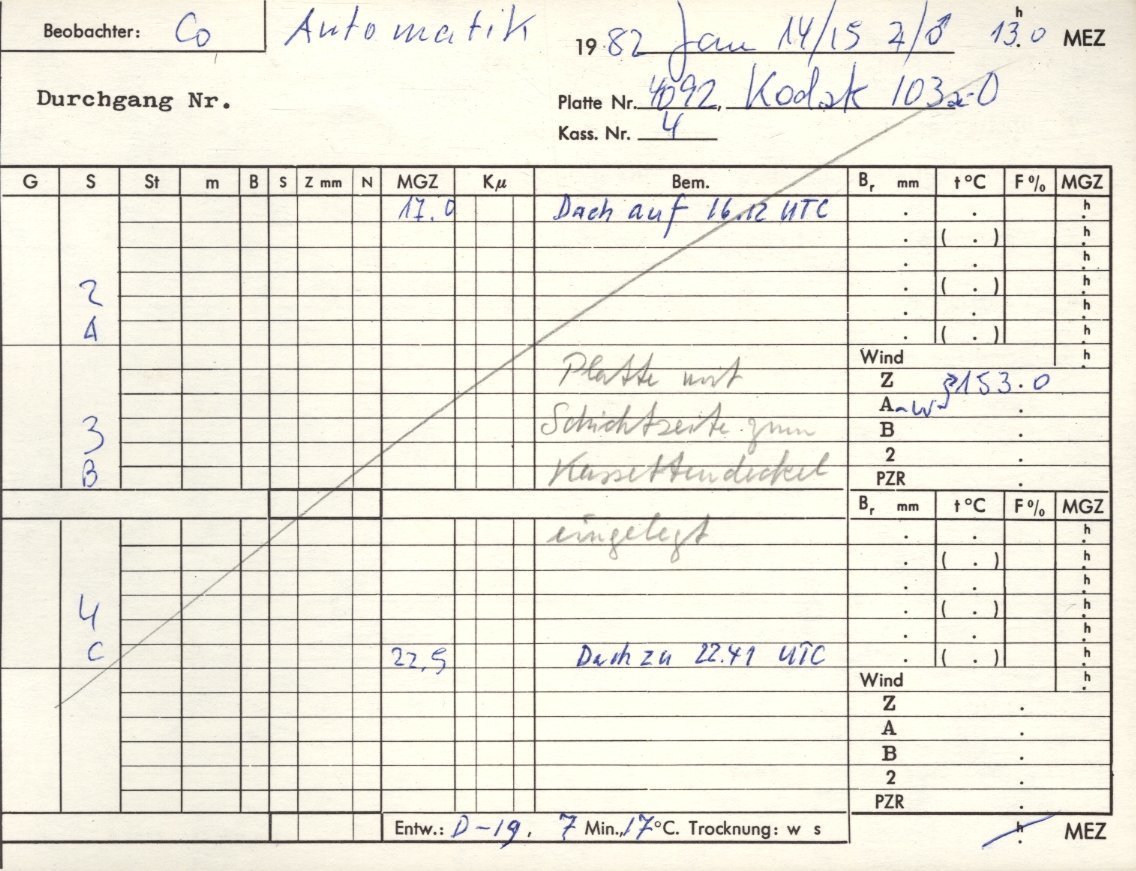 Beobachter: Co Automatik 1982 Jan 14/15 13.0 h MEZ
Durchgang Nr. Platte Nr. 4092, Kodak 103a-O
Kass. Nr. 4
G S St m B S Z mm N MGZ Kµ Bem. Br mm t °C F % MGZ
17.0 Dach auf 16.12 UTC . . h
. ( . ) h
. . h
2 . ( . ) h
. . h
A . ( . ) h
Platte mit Wind h
Z 153.0
Schichtseite zum A .
3 B .
Kassettendeckel 2 .
B PZR .
Br mm t °C F % MGZ
eingelegt . . h
. ( . ) h
. . h
4 . ( . ) h
. . h
C 22.5 Dach zu 22.41 UTC . ( . ) h
Wind h
Z .
A .
B .
2 .
PZR .
Entw.: D-19, 7 Min., 17 °C. Trocknung: w s h MEZ